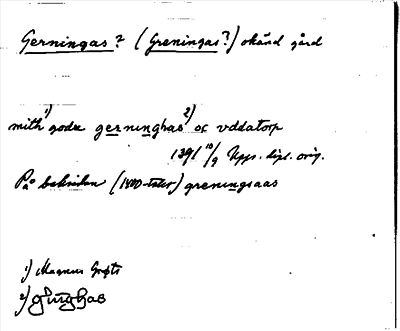 Gerningas? (Greningas?) okänd gård
mith 1) godz gerninghas 2) oc vddatorp
1391 10/9 Upps. dipl. orig.
På baksidan (1400-talet) greningsaas
1) Magnus
2)